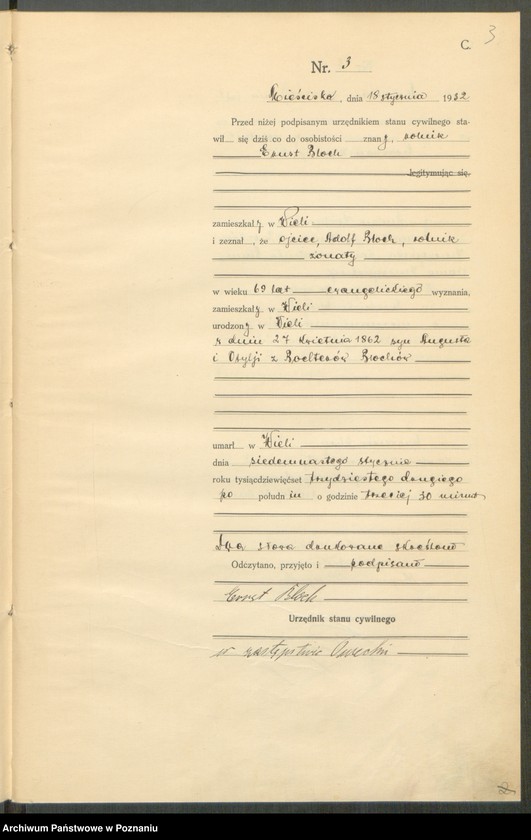 C. 3
Nr. 3
Mieścisko, dnia 18 stycznia 1932
Przed niżej podpisanym urzędnikiem stanu cywilnego sta-
wił się dziś co do osobistości znany, rolnik
Ernst Bloch
legitymując się
zamieszkały w Wieli
i zeznał, że ojciec, Adolf Bloch, rolnik
żonaty
w wieku 69 lat ewangelickiego wyznania,
zamieszkały w Wieli
urodzony w Wieli
z dniu 27 kwietnia 1862 syn Augusta
i Otylji z Blochów
umarł w Wieli
dnia siedemnastego stycznia
roku tysiącdziewięćset trzydziestego drugiego
po południu o godzinie trzeciej 30 minut
Dwa słowa drukowane skreślono
Odczytano, przyjęto i podpisano
Ernst Bloch
Urzędnik stanu cywilnego
w zastępstwie
Archiwum Państwowe w Poznaniu